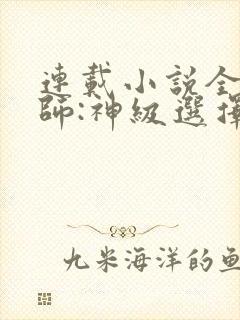 連載小説全
師:神級選擇
九米海洋的魚